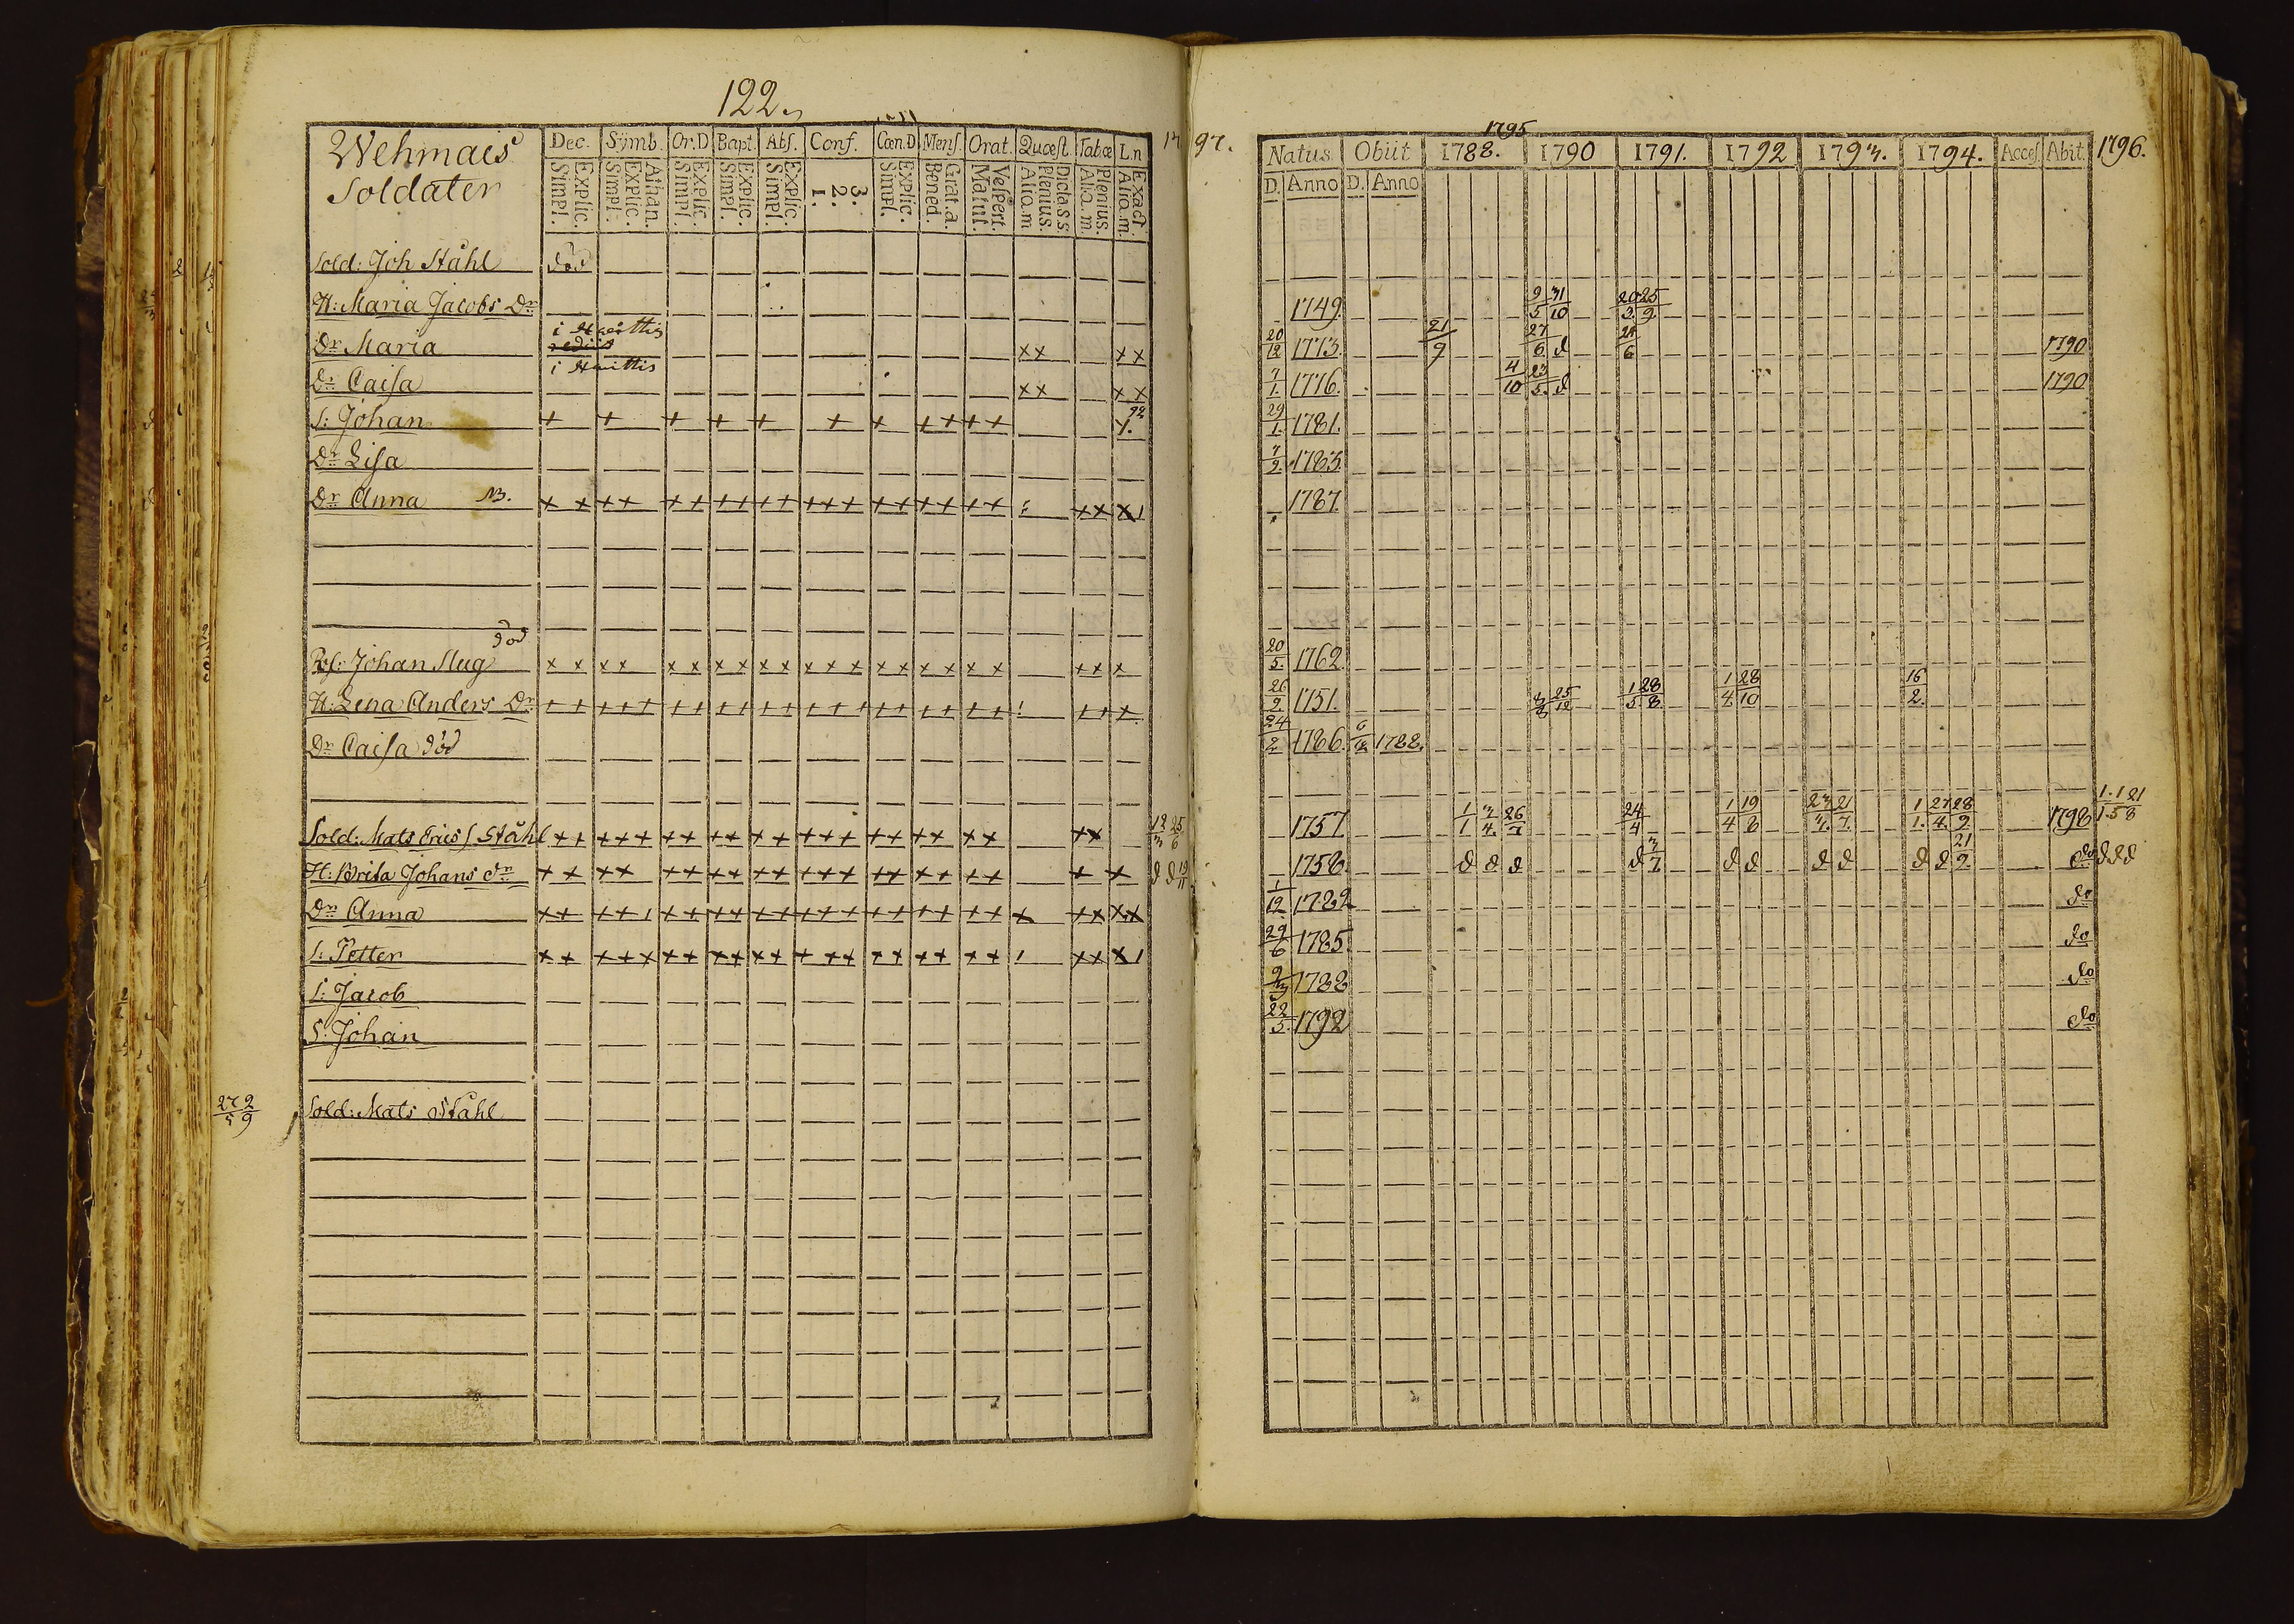 122.
Wehmais
Soldater
Dec. Symb. Or.D Bapt. Abs. Conf. Cœn.D Mens. Orat. Quæst. Tabæ L.n
Explic. Simpl. Athan. Explic. Simpl. Explic. Simpl. Explic. Simpl. Explic. Simpl. 3. 2. 1. Explic. Simpl. Grat.a. Bened. Vespert. Matut. Dictass Plenius. Alia.m Plenius. Alia.m Exact. Alia.m.
Sold: Joh Ståhl död
H: Maria Jacobs Dr
i Haittis
Dr Maria xx xx
i Haittis
Dr Caisa xx xx
S: Johan + + + + + + + ++ ++ 92
Dr Lisa
Dr Anna NB. ++ ++ ++ ++ ++ +++ ++ ++ ++ ++
död
Rs: Johan Slug xx xx xx xx xx xxx xx xx xx xx x
H: Lena Anders Dr
Dr Caisa död
Sold: Mats Erics S. Ståhl ++ +++ ++ ++ ++ +++ ++ ++ ++ ++
H: Brita Johans dr ++ ++ ++ ++ ++ +++ ++ ++ ++ + +
Dr Anna
S: Petter
S: Jacob
S: Johan
27 2
5 9
Sold: Mats Ståhl
1797.
18 25
3 6
d d 19
11
1795
Natus. Obiit 1788. 1790 1791. 1792 1793. 1794. Acces. Abit. 1796.
D. Anno D. Anno
1749. 9/5 31/10 20/3 25/9
20/12 1773. 21/9 27/6 d 1790
7/1. 1776. 4/10 23/5. d 1790
29/1. 1781.
7/9. 1783.
1787.
20/5. 1762.
26/9. 1751. 25/12 1/5 28/8. 1/4 28/10 16/2.
24/2 1786. 1788.
1757. 1/1 3/4. 26/7 24/4 1/4 19/8 23/4. 21/7. 1/1. 27/4. 28/9 1798 1/1. 1/5 21/8
1758. d d d d 3/7 d d d d d d 21/9. do d d d
1/12 1782 do
29/6 1785. do
9/3 1788 do
22/5. 1792 do